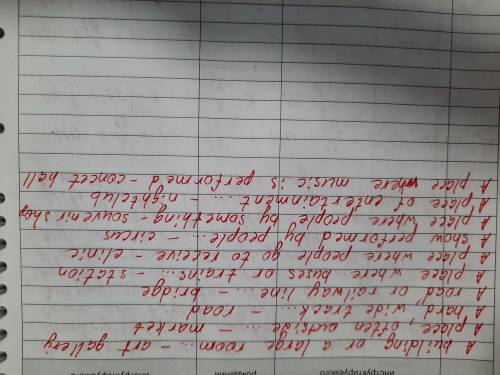 инструктируемого рождения инструктируемого
A building or a large room ... - art gallery
A place, often outside ... - market
A hard, wide track ... - road
A road, or railway line ... - bridge
A place where buses or trains ... - station
A place where people go to receive - clinic
A show performed by people ... - circus
A place where people by something - souvenir shop
A place of entertainment .... - nightclub
A place where music is performed - concet hall